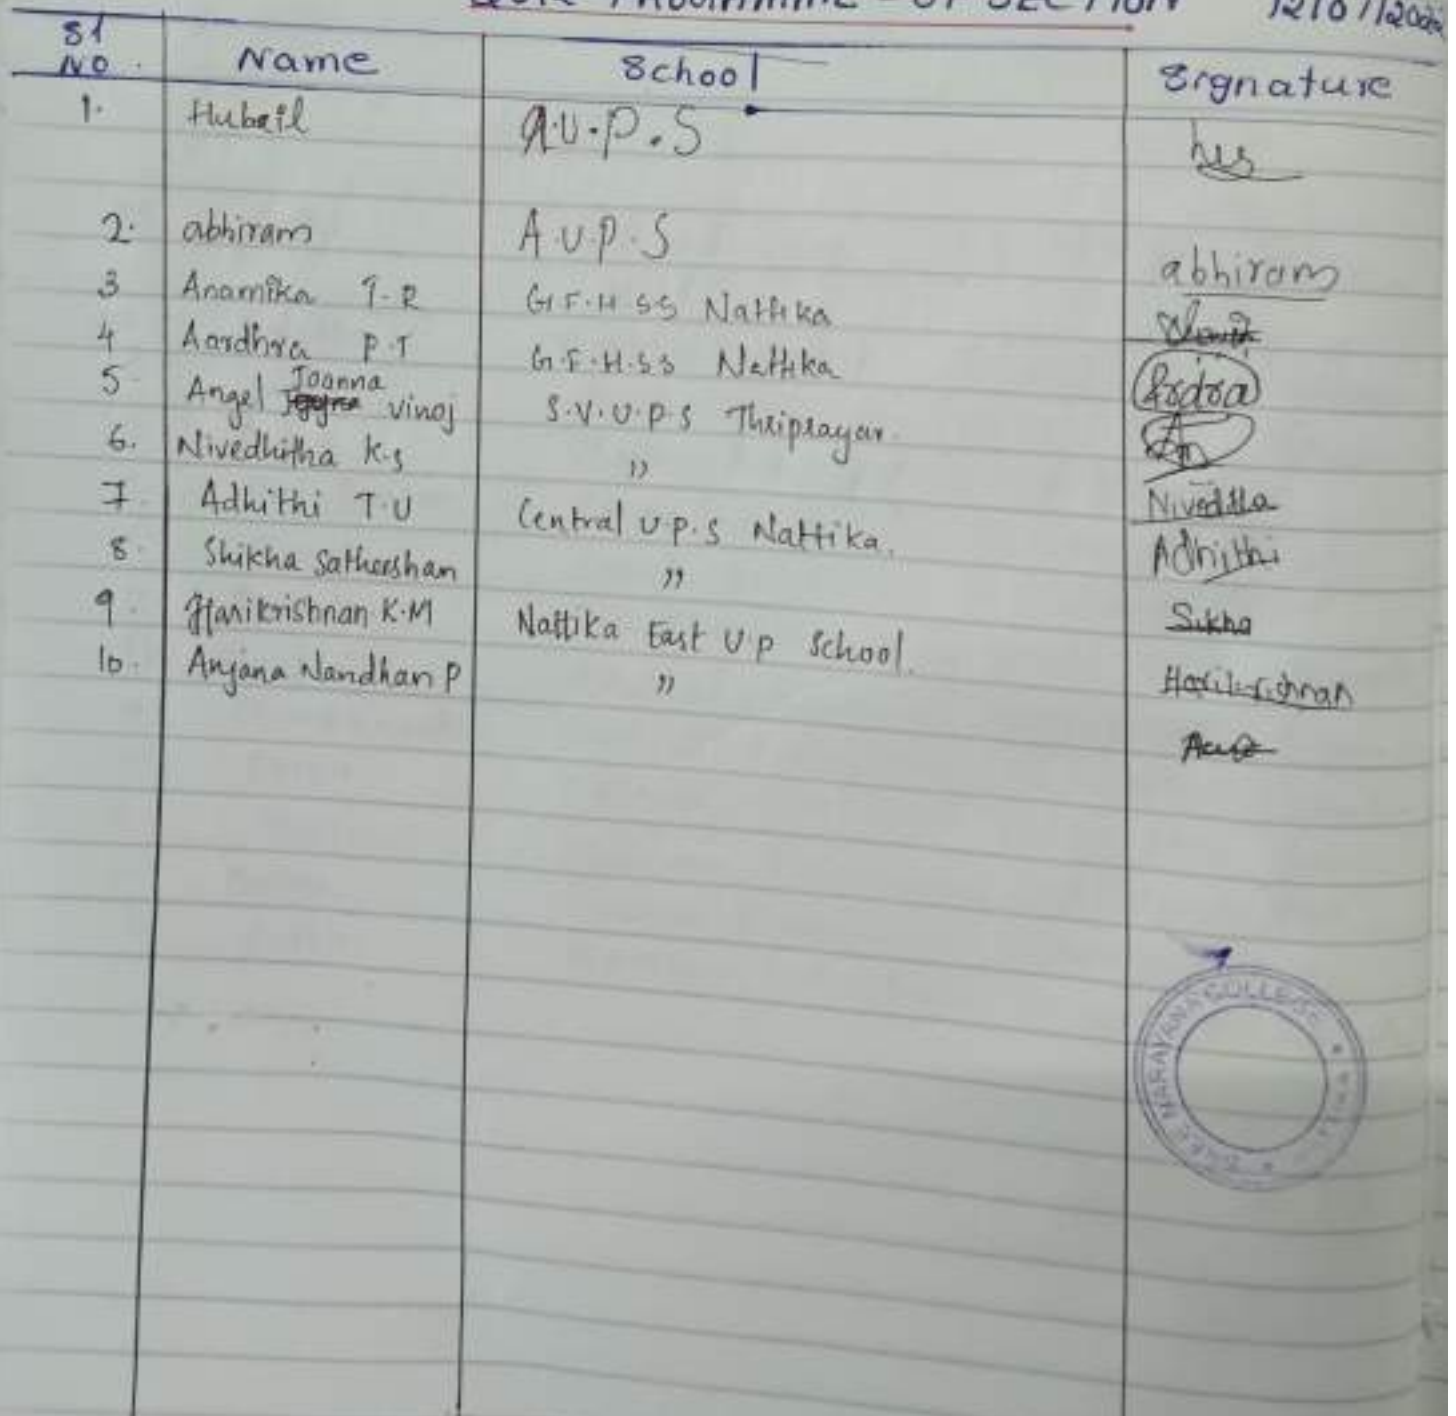 PROGRAMME - UP SECTION
Sl NO. Name School Signature
1. Hubail A.U.P.S
2. abhiram A.U.P.S abhiram
3 Anamika T.R G.F.H.SS Nattika
4 Aardhra P.T G.F.H.SS Nattika Ardra
5 Angel Joanna Vinoj S.V.U.P.S Thriprayar.
6. Nivedhitha K.S " Nivedtha
7 Adhithi T.U Central U.P.S Nattika. Adhithi
8. Shikha Satheeshan " Sikha
9. Harikrishnan K.M Nattika East U P School. Harikrishnan
10. Anjana Nandhan P "
SREE NARAYANA COLLEGE